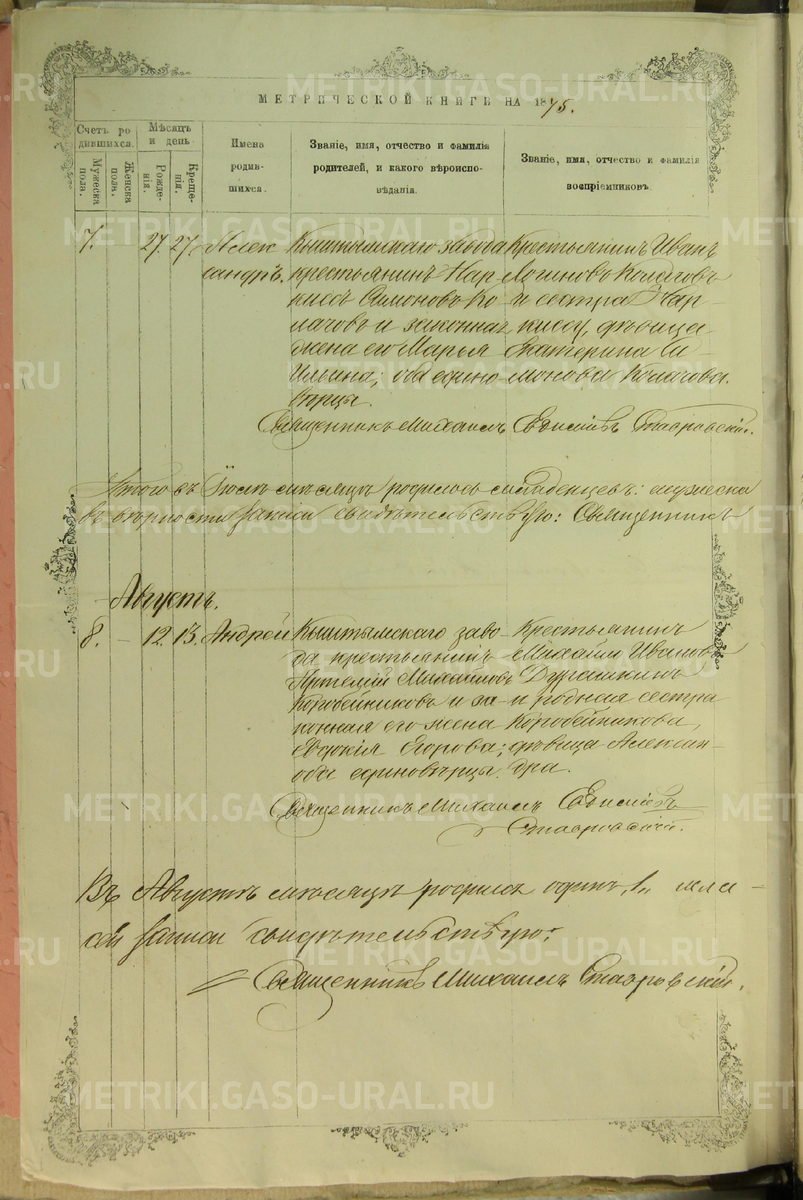 МЕТРИЧЕСКОЙ КНИГИ НА 1875.
Счетъ ро-
дившихся.
Мужеска
пола.
Женска
пола.
Мѣсяцъ
и день
Рожде-
нія.
Креще-
нія.
Имена
родив-
шихся.
Званіе, имя, отчество и фамилія
родителей, и какого вѣроиспо-
вѣданія.
Званіе, имя, отчество и фамилія
воспріемниковъ.
7. 27. 27.
Алек
сандръ.
Кыштымскаго завода
крестьянинъ Нар
кисъ Симоновъ Ко
и законная
жена его Марья
Ильина; оба едино
вѣрцы.
Крестьянинъ Иванъ
Логиновъ
и сестра Нар-
кису, дѣвица
Екатерина Си
монова
Священникъ Михаилъ Ставровскій.
Итого въ Іюлѣ мѣсяцѣ родилось младенцевъ: мужеска
въ вѣрности записи свидѣтельствую: Священникъ
Августъ.
8. – 12. 13. Андрей
Кыштымскаго заво-
да крестьянинъ
Артемій Михайловъ
Коробейниковъ и за-
конная его жена
Евдокія Егорова;
оба единовѣрцы.
Крестьянинъ
Михаилъ Ивановъ
и родная сестра
Коробейникова,
дѣвица Алексан-
дра.
Священникъ Михаилъ
Ставровскій.
Въ Августѣ мѣсяцѣ родился одинъ „1„ мла-
сей записи свидѣтельствую:
Священникъ Михаилъ Ставровскій.
METRIKI.GASO-URAL.RU